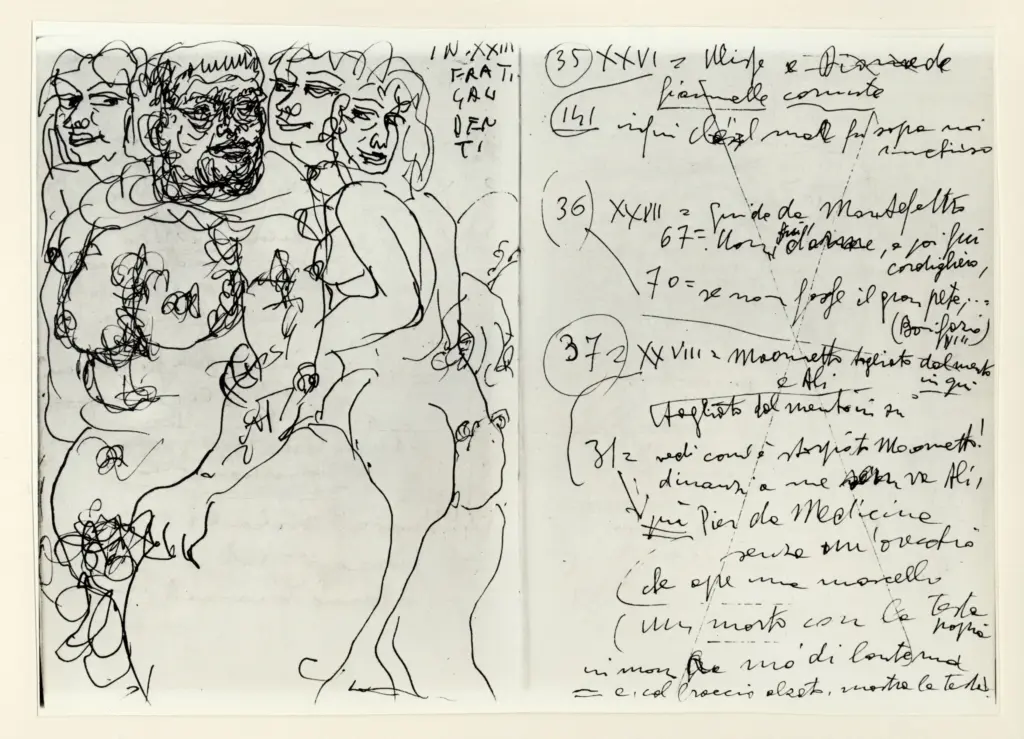 IN. XXIII
FRATI
GAU
DEN
TI
35 XXVI = Ulisse e Diomede
fiammelle cornute
141 infin che'l mar fu sopra noi
rinchiuso
36 XXVII = Guido da Montefeltro
67 = Uom fui d'arme, e poi fui
cordigliero,
70 = se non fosse il gran prete,...
(Bonifazio
VIII)
37 = XXVIII = Maometto tagliato dal mento
e Alì in giù
tagliato dal mento in su
31 = vedi com'è storpiato Maometto!
dinanzi a me sen va Alì,
più Pier da Medicina
senza un'orecchio
che apre una
(Un morto con la testa
propria
in mano a mo' di lanterna
= e, col braccio alzato, mostra la testa.